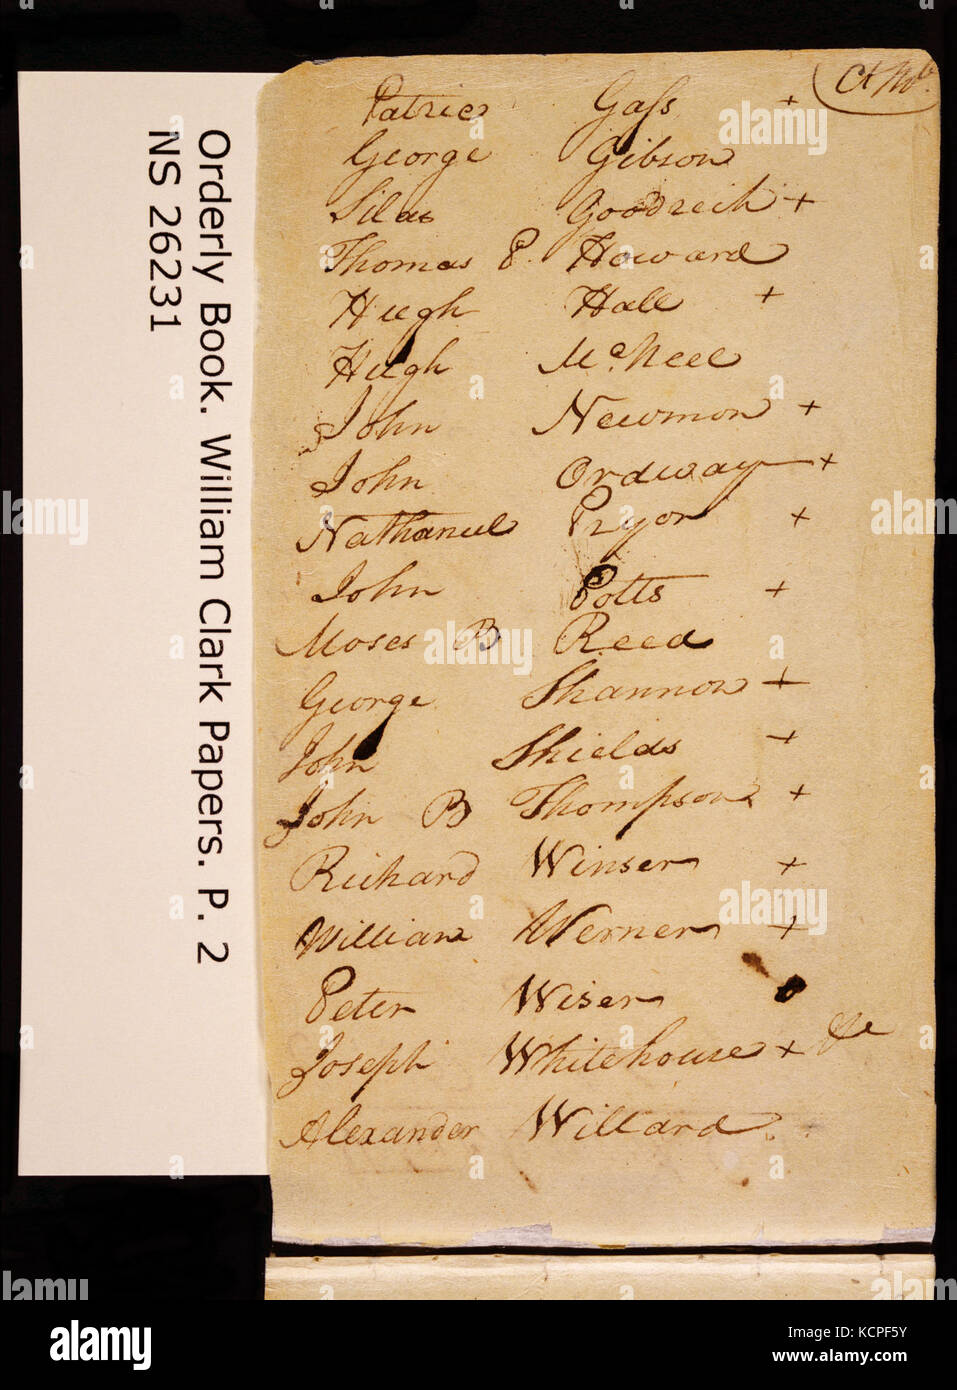 Orderly Book. William Clark Papers. P. 2
NS 26231
Patric Gass +
George Gibson
Silas Goodrich +
Thomas P. Howard
Hugh Hall +
Hugh McNeel
John Newmon +
John Ordway +
Nathaniel Pryor +
John Potts +
Moses B Reed
George Shannon +
John Shields +
John B Thompson +
Richard Winser +
William Werner +
Peter Wiser
Joseph Whitehouse +
Alexander Willard
a alamy
alamy
Image ID: KCPF5Y
www.alamy.com